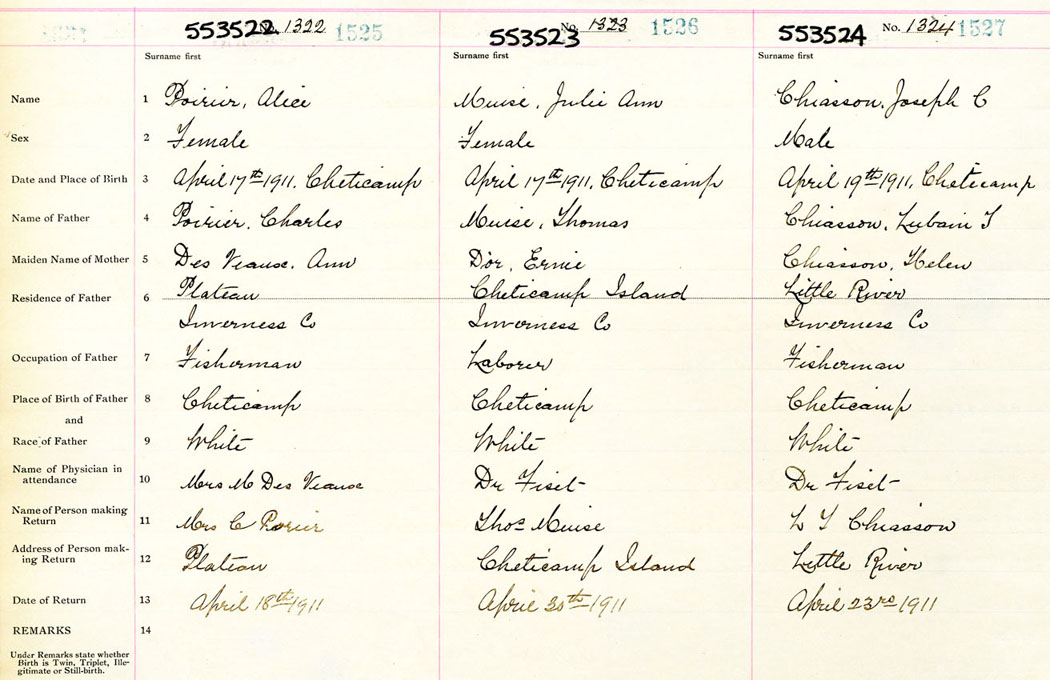 553522 No. 1322 1525 553523 No. 1323 1526 553524 No. 1324 1527
Surname first Surname first Surname first
Name 1 Poirier, Alice Muise, Julie Ann Chiasson, Joseph C
Sex 2 Female Female Male
Date and Place of Birth 3 April 17th 1911, Cheticamp April 17th 1911, Cheticamp April 19th 1911, Cheticamp
Name of Father 4 Poirier, Charles Muise, Thomas Chiasson, Lubain T
Maiden Name of Mother 5 Des Veaux, Ann Dor, Ernie Chiasson, Helen
Residence of Father 6 Plateau Cheticamp Island Little River
Inverness Co Inverness Co Inverness Co
Occupation of Father 7 Fisherman Laborer Fisherman
Place of Birth of Father 8 Cheticamp Cheticamp Cheticamp
and
Race of Father 9 White White White
Name of Physician in
attendance 10 Mrs M Des Veaux Dr Fiset Dr Fiset
Name of Person making
Return 11 Mrs C Porier Thos Muise L T Chiasson
Address of Person mak-
ing Return 12 Plateau Cheticamp Island Little River
Date of Return 13 April 18th 1911 April 30th 1911 April 23rd 1911
REMARKS 14
Under Remarks state whether
Birth is Twin, Triplet, Ille-
gitimate or Still-birth.